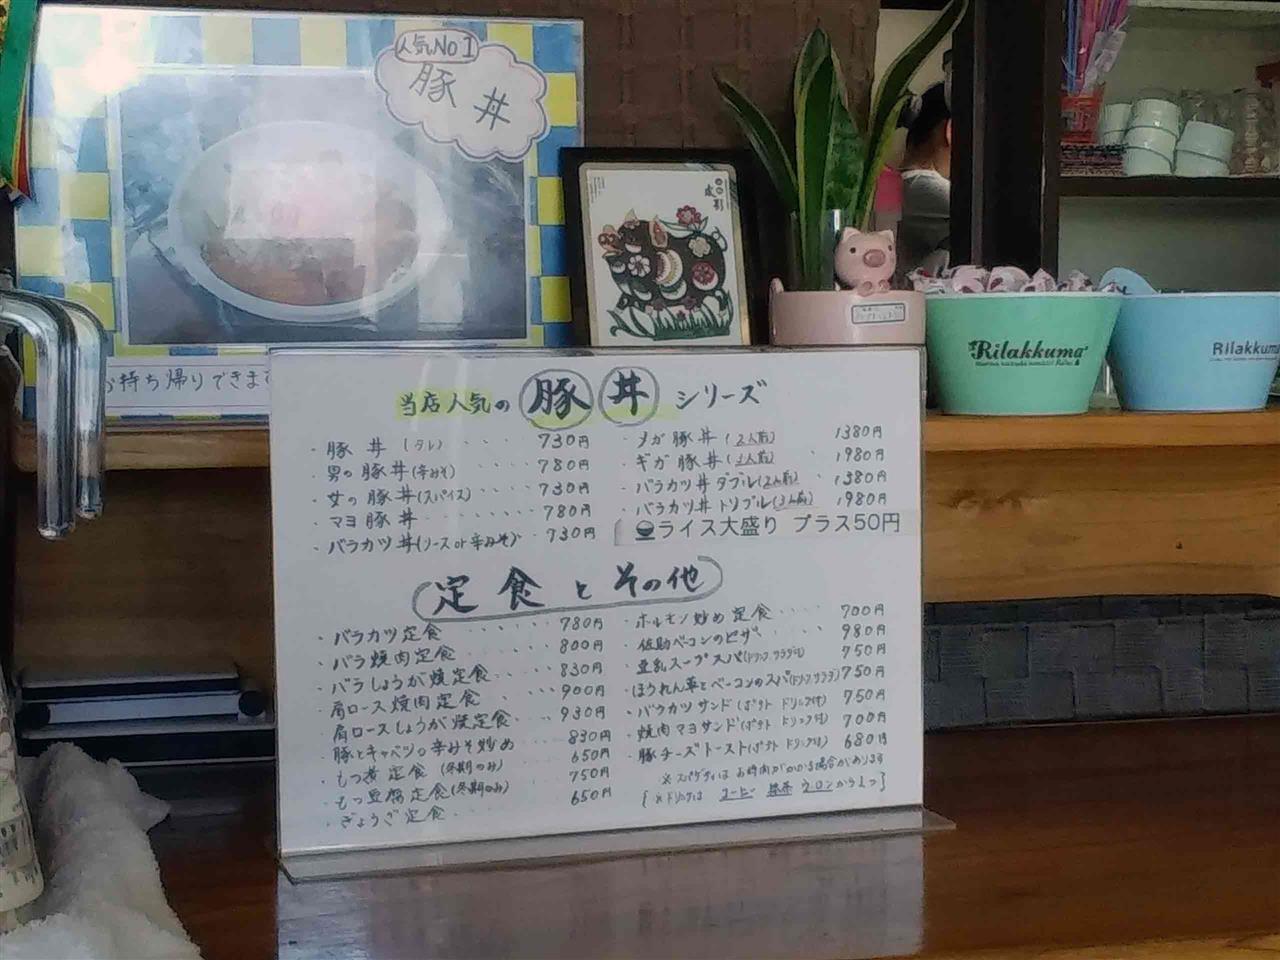 人気No1
豚丼
お持ち帰りできます
Rilakkuma
Rilakkuma
当店人気の 豚丼 シリーズ
・豚丼 (タレ) ････ 730円
・男の豚丼(辛みそ) 780円
・女の豚丼(スパイス) ････ 730円
・マヨ豚丼 ････ 780円
・バラカツ丼(ソースor辛みそ) ･･ 730円
・メガ豚丼 (2人前) 1380円
・ギガ豚丼 (3人前) 1980円
・バラカツ丼ダブル(2人前) 1380円
・バラカツ丼トリプル(3人前) 1980円
ライス大盛り プラス50円
定食とその他
・バラカツ定食 ････ 780円
・バラ焼肉定食 ････ 800円
・バラしょうが焼定食 ････ 830円
・肩ロース焼肉定食 ････ 900円
・肩ロースしょうが焼定食 ････ 930円
・豚とキャベツの辛みそ炒め ････ 830円
・もつ煮定食 (冬期のみ) ････ 650円
・もつ豆腐定食(冬期のみ) ････ 750円
・ぎょうざ定食 ････ 650円
・ホルモン炒め定食 ････ 700円
・佐助ベーコンのピザ ････ 980円
・豆乳スープスパ(ドリンク サラダ付) 750円
・ほうれん草とベーコンのスパ(ドリンク サラダ) 750円
・バラカツサンド(ポテト ドリンク付) 750円
・焼肉マヨサンド(ポテト ドリンク付) 700円
・豚チーズトースト(ポテト ドリンク付) 680円
※スパゲティは お時間がかかる場合があります
[※ドリンクは コーヒー 紅茶 ウーロンから1つ]